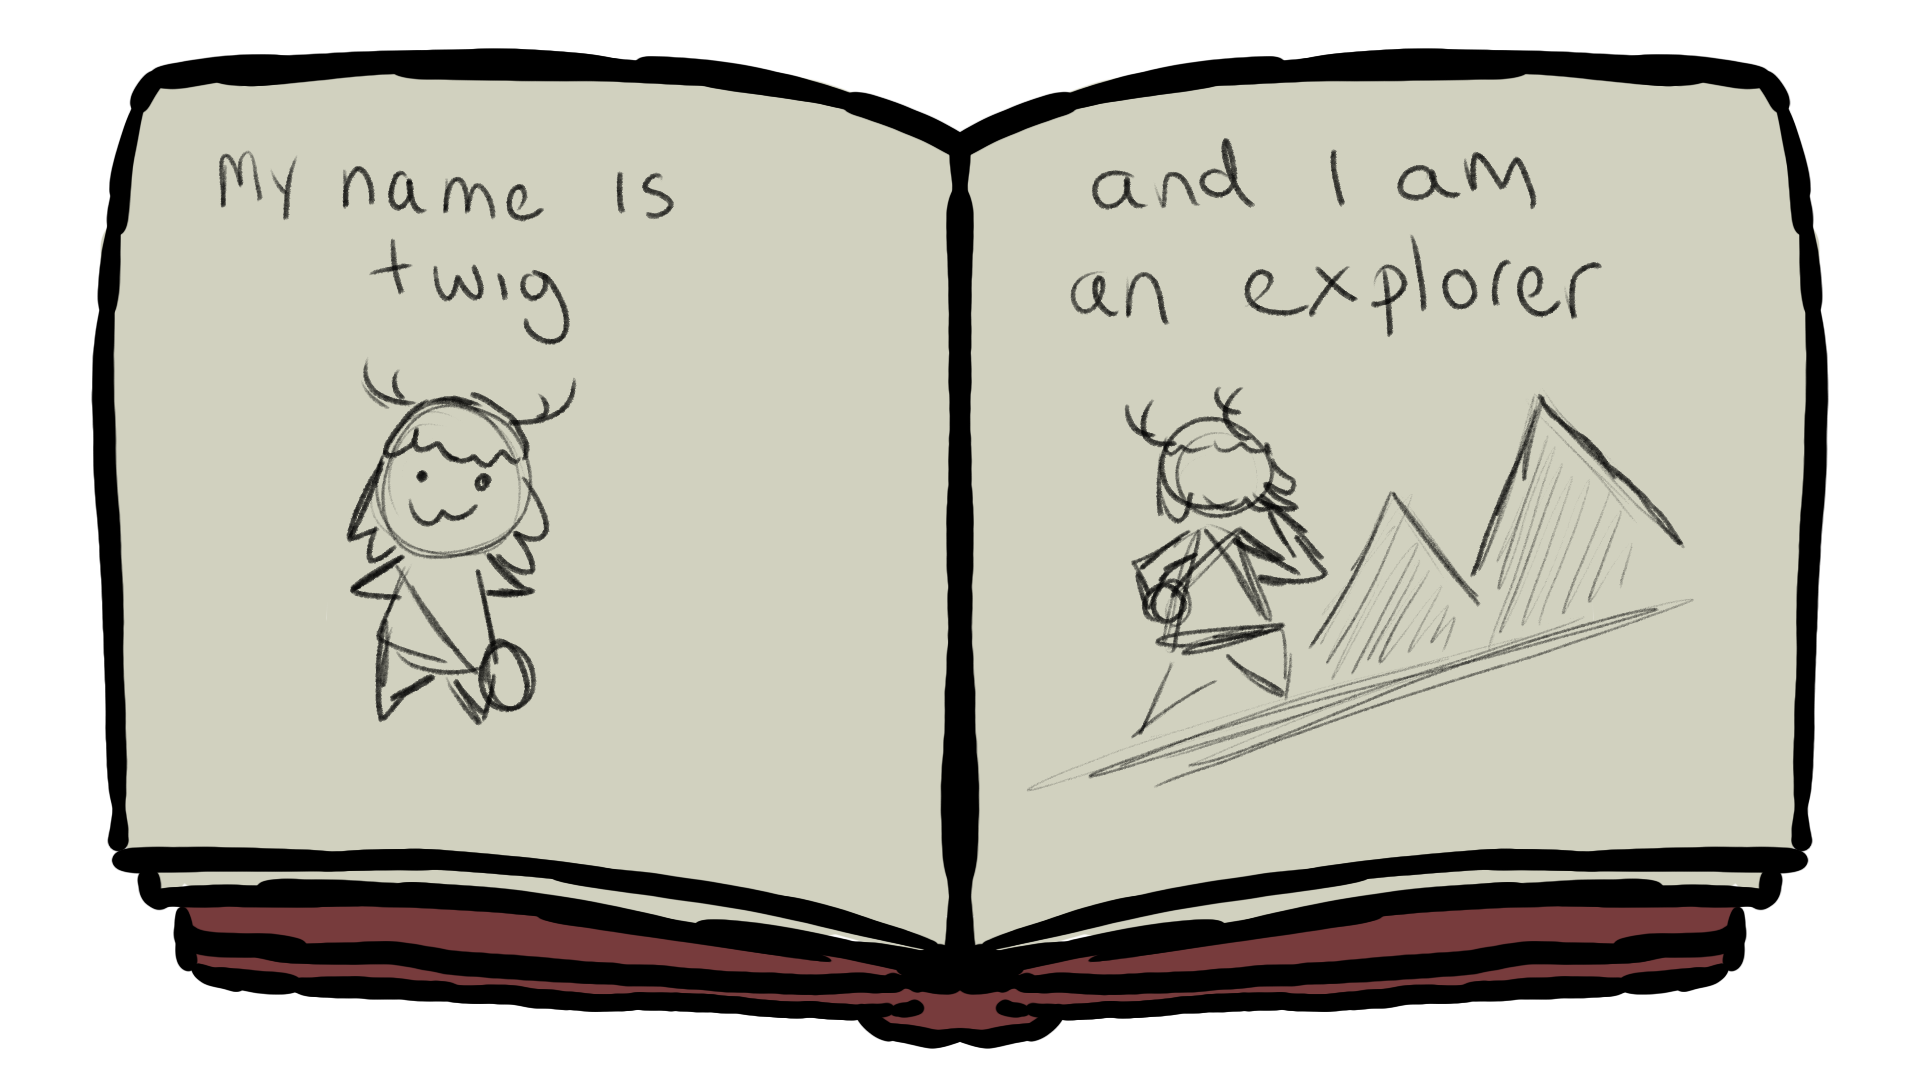 My name is
twig
and I am
an explorer